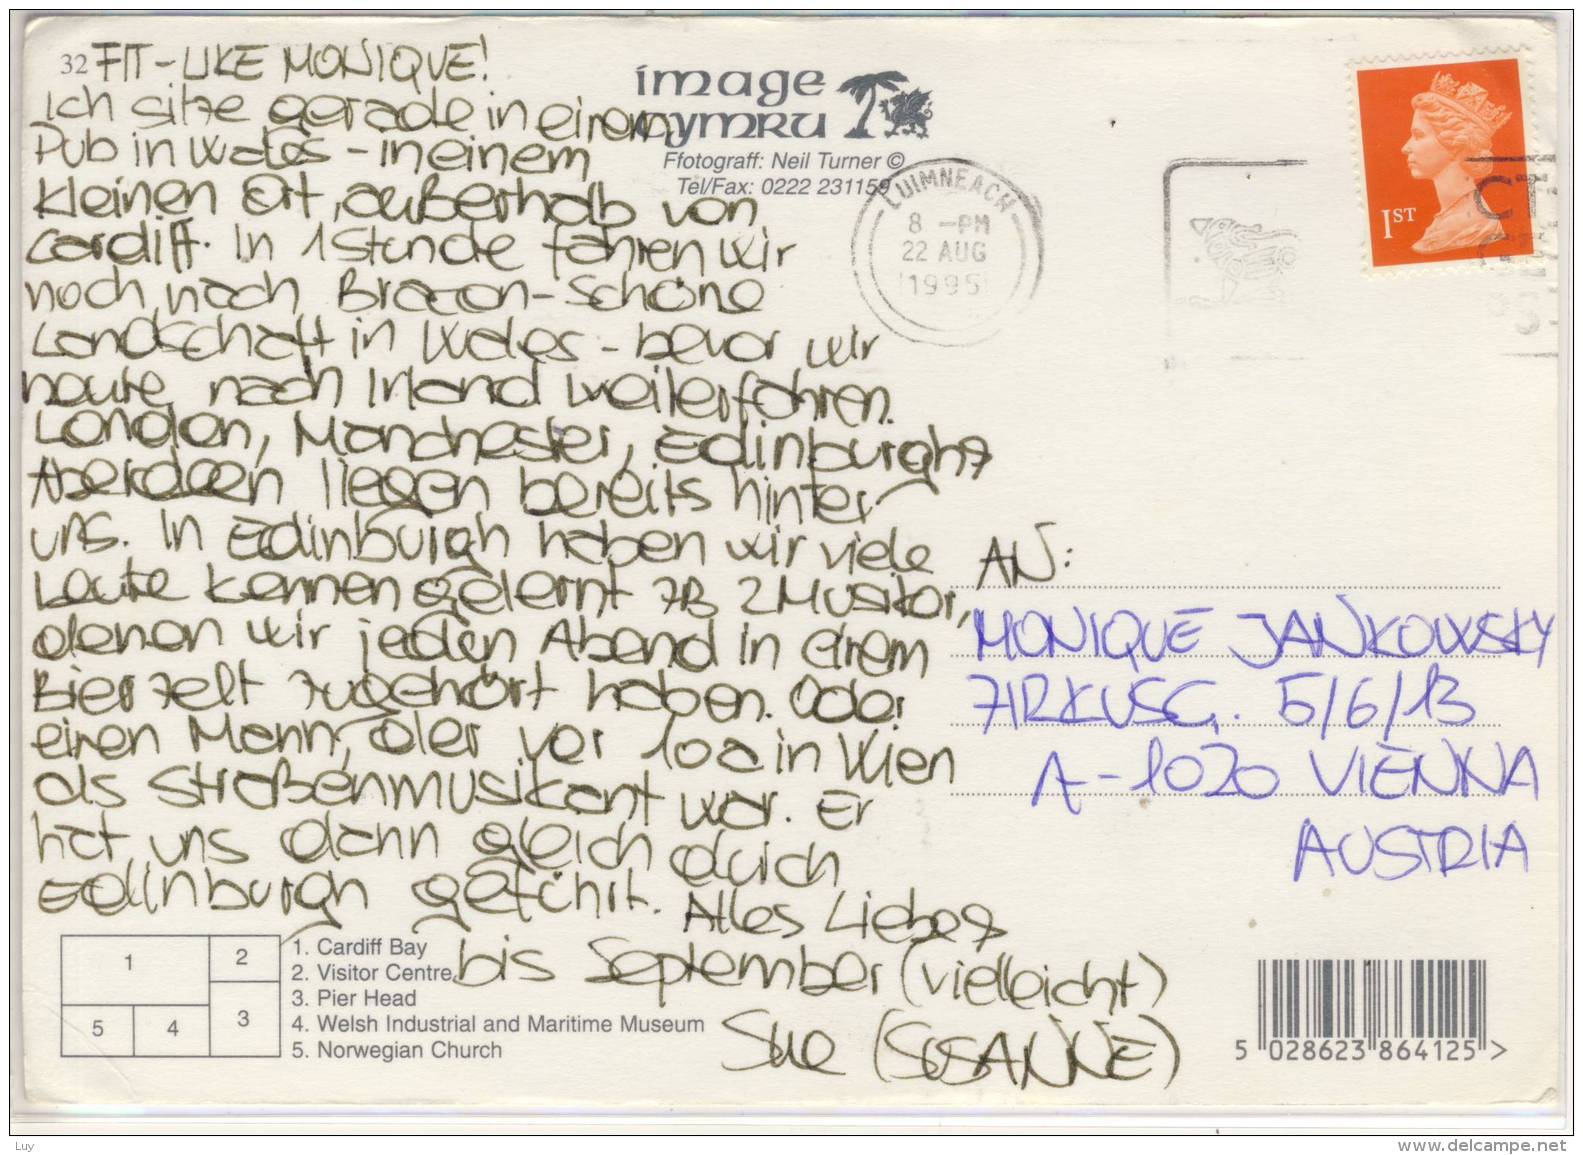 32 FIT-LIKE MONIQUE!
Ich sitze gerade in einem
Pub in Wales - in einem
kleinen Ort, außerhalb von
Cardiff. In 1 Stunde fahren wir
noch nach Bracon - Schöne
Landschaft in Wales - bevor wir
heute nach Irland weiterfahren.
London, Manchester, Edinburgh,
Aberdeen liegen bereits hinter
uns. In Edinburgh haben wir viele
Leute kennengelernt ZB 2 Musiker,
denen wir jeden Abend in einem
Bierzelt zugehört haben. Oder
einen Mann, der vor 10a in Wien
als Straßenmusikant war. Er
hat uns dann gleich durch
Edinburgh geführt. Alles Liebe &
bis September (vielleicht)
Sue (SUSANNE)
image
cymru
Ffotograff: Neil Turner ©
Tel/Fax: 0222 231159
LUIMNEACH
8 - PM
22 AUG
1995
1ST
AN:
MONIQUE JANKOWSKY
ZIRKUSG. 5/6/13
A-1020 VIENNA
AUSTRIA
1 2 3 4 5
1. Cardiff Bay
2. Visitor Centre
3. Pier Head
4. Welsh Industrial and Maritime Museum
5. Norwegian Church
5 028623 864125 >
Luy
www.delcampe.net